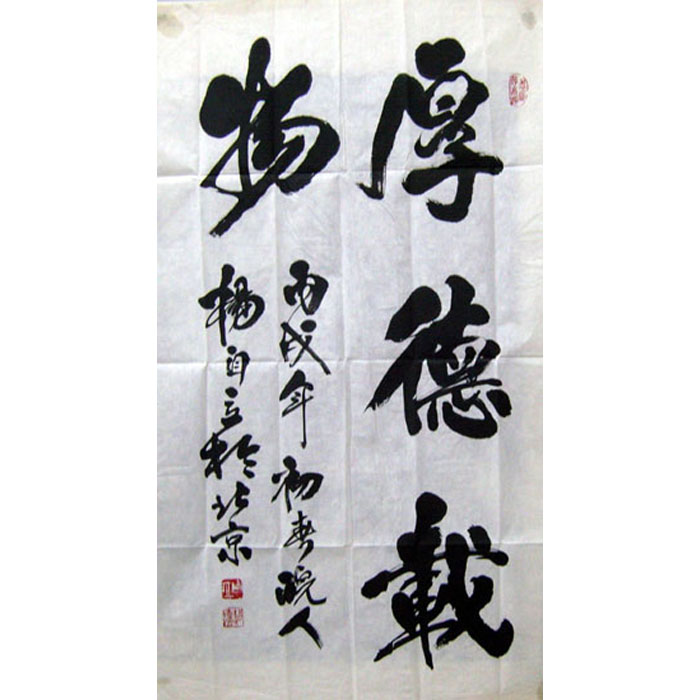 厚德載
物
丙戌年初春皖人
楊自立於北京